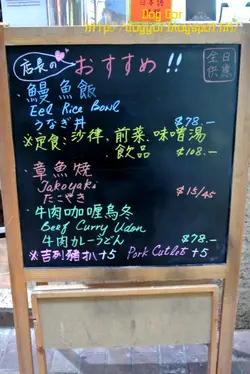 Dog Gor
http://doggor.blogspot.hk/
日本語
店長の おすすめ!!
全日
供應
・鰻魚飯
Eel Rice Bowl
うなぎ丼 $78.—
※定食:沙律、前菜、味噌湯
飲品 $108.—
・章魚燒
Takoyaki
たこやき $15/45
・牛肉咖喱烏冬
Beef Curry Udon
牛肉カレーうどん $78.—
※吉列豬扒+5 Pork Cutlet +5